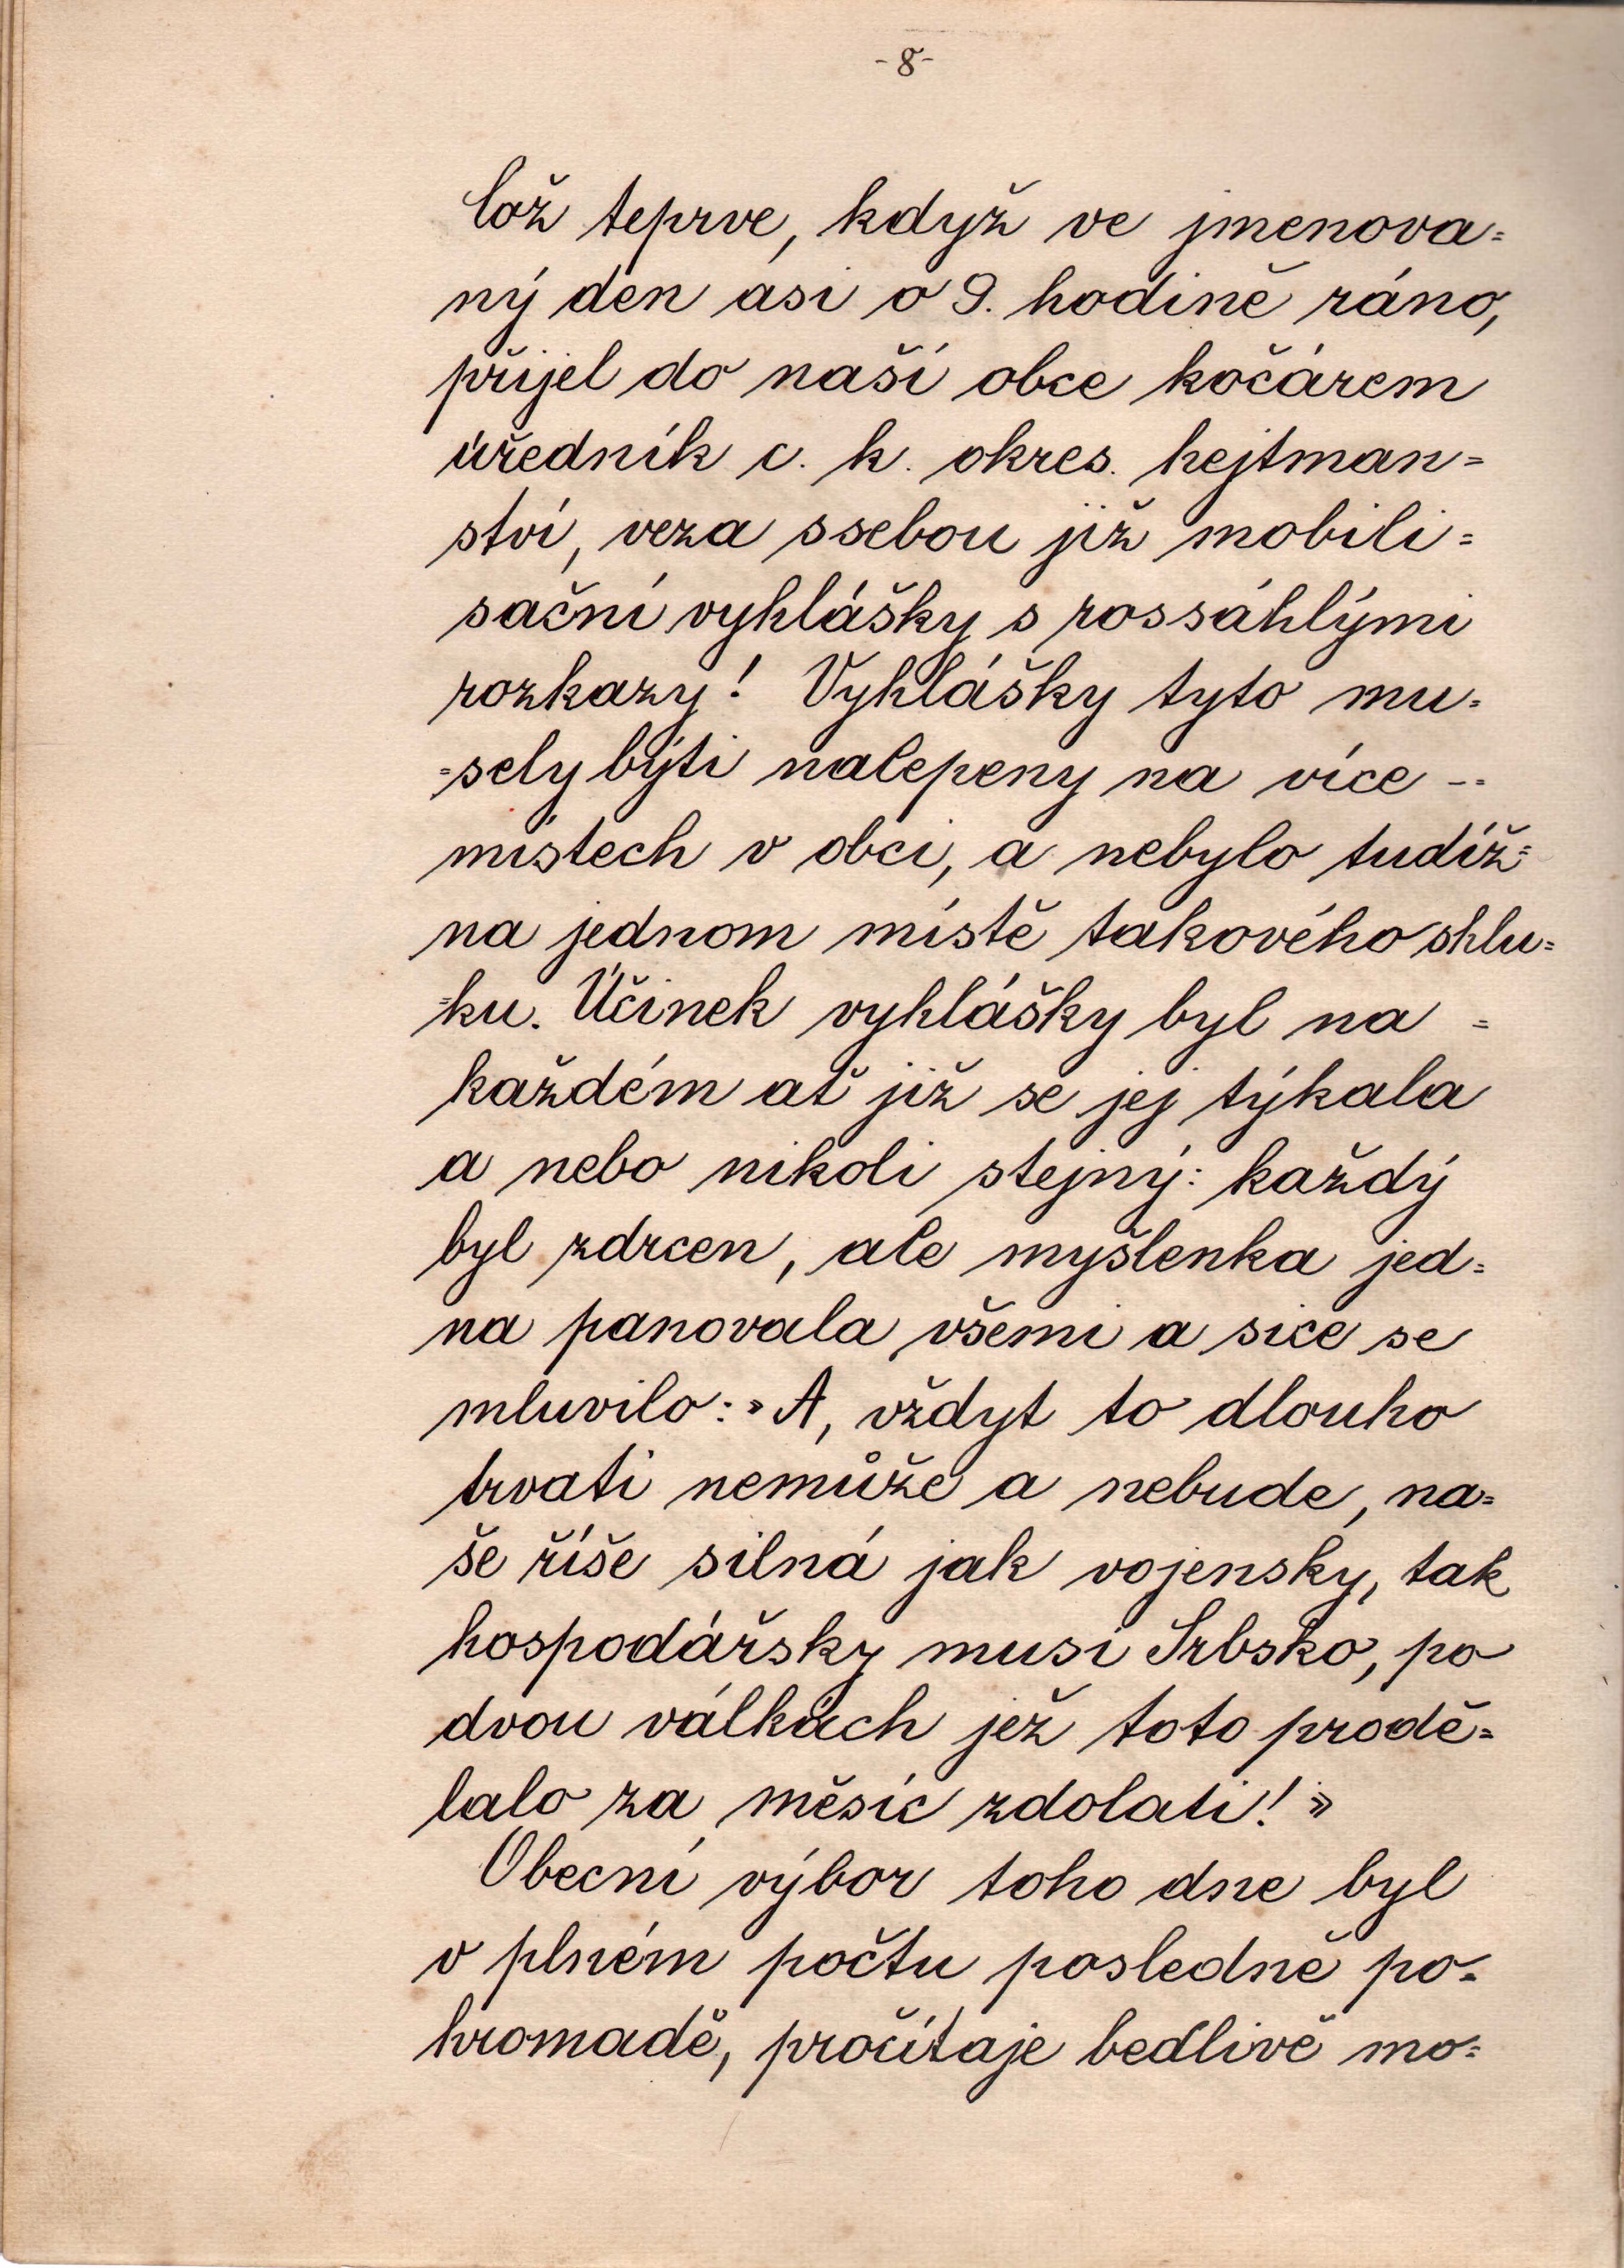 -8-
Což teprve, když ve jmenova=
ný den asi o 9. hodině ráno,
přijel do naší obce kočárem
úředník c. k. okres. hejtman=
ství, veza ssebou již mobili=
sační vyhlášky s rossáhlými
rozkazy! Vyhlášky tyto mu=
=sely býti nalepeny na více -=
místech v obci, a nebylo tudíž=
na jednom místě takového shlu=
=ku. Účinek vyhlášky byl na =
každém ať již se jej týkala
a nebo nikoli stejný: každý
byl zdrcen, ale myšlenka jed=
na panovala všemi a sice se
mluvilo: » A, vždyt to dlouho
trvati nemůže a nebude, na=
še říše silná jak vojensky, tak
hospodářsky musí Srbsko, po
dvou válkách jež toto prodě=
lalo za měsíc zdolati! »
Obecní výbor toho dne byl
v plném počtu posledně po=
hromadě, pročítaje bedlivě mo=